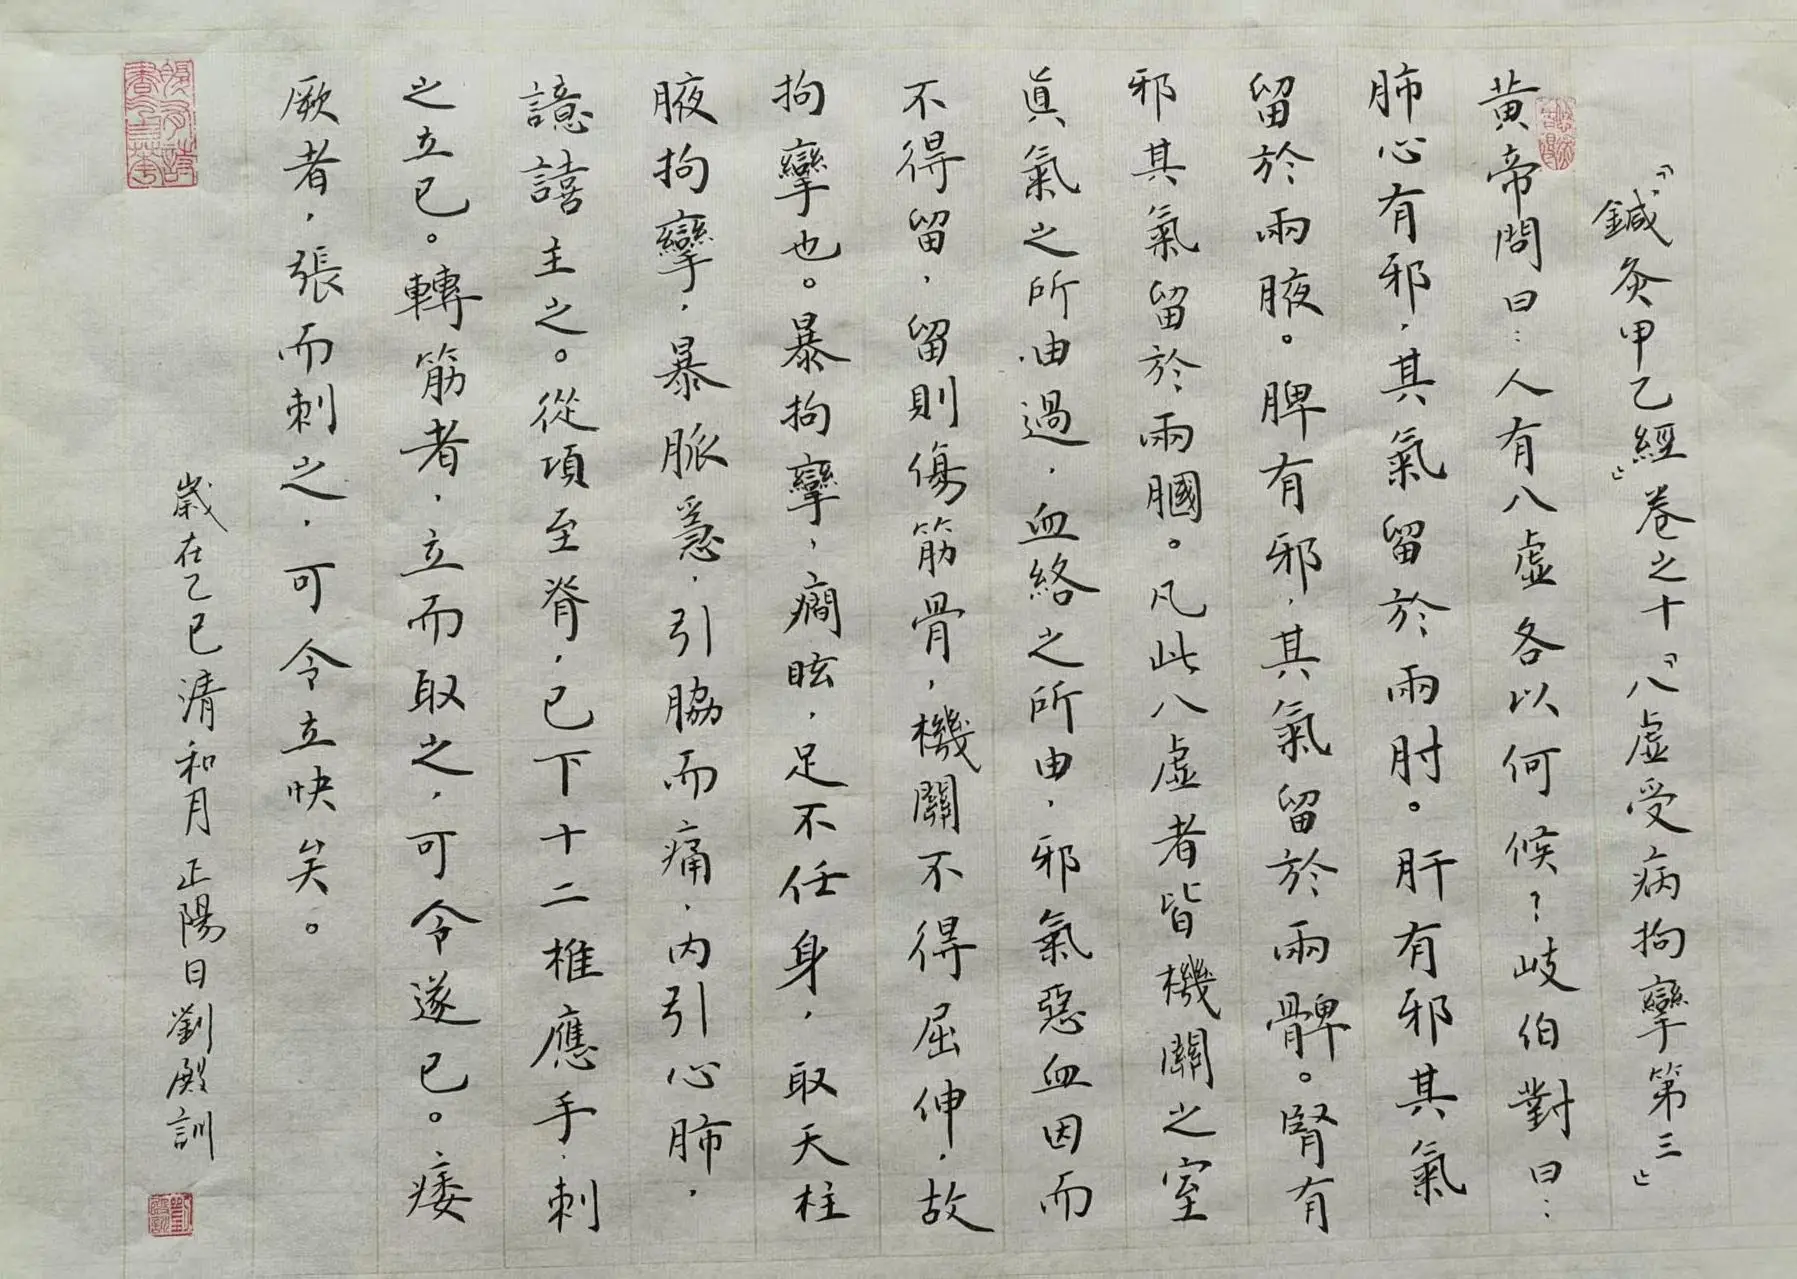 「鍼灸甲乙經」卷之十「八虛受病拘攣第三」
黃帝問曰：人有八虛各以何候？岐伯對曰：
肺心有邪，其氣留於兩肘。肝有邪其氣
留於兩腋。脾有邪，其氣留於兩髀。腎有
邪其氣留於兩膕。凡此八虛者皆機關之室
真氣之所由過，血絡之所由，邪氣惡血因而
不得留，留則傷筋骨，機關不得屈伸，故
拘攣也。暴拘攣，癇眩，足不任身，取天柱
腋拘攣，暴脈急，引脇而痛，內引心肺，
譩譆主之。從項至脊，已下十二椎應手，刺
之立已。轉筋者，立而取之，可令遂已。痿
厥者，張而刺之，可令立快矣。
歲在乙巳清和月正陽日劉殿訓